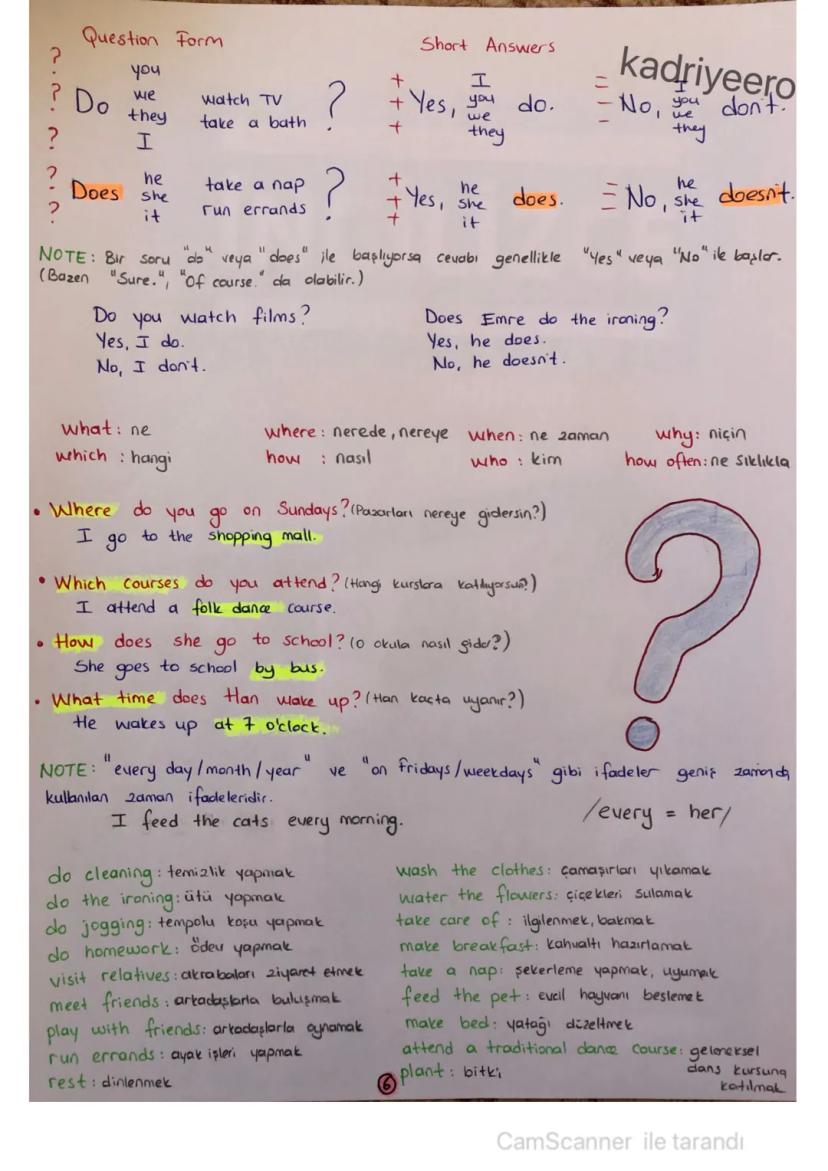 Question Form
Short Answers
kadriyeero
? ? ? ? ?
Do you we they I watch TV take a bath ?
+ + + Yes, I you we they do.
No, I you we they don't.
Does he she it take a nap run errands ?
+ + + Yes, he she it does.
No, he she it doesn't.
NOTE: Bir soru "do" veya "does" ile başlıyorsa cevabı genellikle "Yes" veya "No" ile başlar.
(Bazen "Sure.", "Of course." da olabilir.)
Do you watch films?
Yes, I do.
No, I don't.
Does Emre do the ironing?
Yes, he does.
No, he doesn't.
what: ne
where: nerede, nereye
when: ne zaman
why: niçin
which : hangi
how : nasıl
who : kim
how often: ne sıklıkla
• Where do you go on Sundays? (Pazarları nereye gidersin?)
I go to the shopping mall.
• Which courses do you attend? (Hangi kurslara katılıyorsun?)
I attend a folk dance course.
• How does she go to school? (O okula nasıl gider?)
She goes to school by bus.
• What time does Han wake up? (Han kaçta uyanır?)
He wakes up at 7 o'clock.
?
NOTE: "every day/month/year" ve "on Fridays/weekdays" gibi ifadeler geniş zamanda
kullanılan zaman ifadeleridir.
I feed the cats every morning.
/every = her/
do cleaning: temizlik yapmak
do the ironing: ütü yapmak
do jogging: tempolu koşu yapmak
do homework: ödev yapmak
visit relatives: akrabaları ziyaret etmek
meet friends: arkadaşlarla buluşmak
play with friends: arkadaşlarla oynamak
run errands: ayak işleri yapmak
rest: dinlenmek
wash the clothes: çamaşırları yıkamak
water the flowers: çiçekleri sulamak
take care of : ilgilenmek, bakmak
make breakfast: kahvaltı hazırlamak
take a nap: şekerleme yapmak, uyumak
feed the pet: evcil hayvanı beslemek
make bed: yatağı düzeltmek
attend a traditional dance course: geleneksel
dans kursuna
katılmak
plant: bitki
6
CamScanner ile tarandı